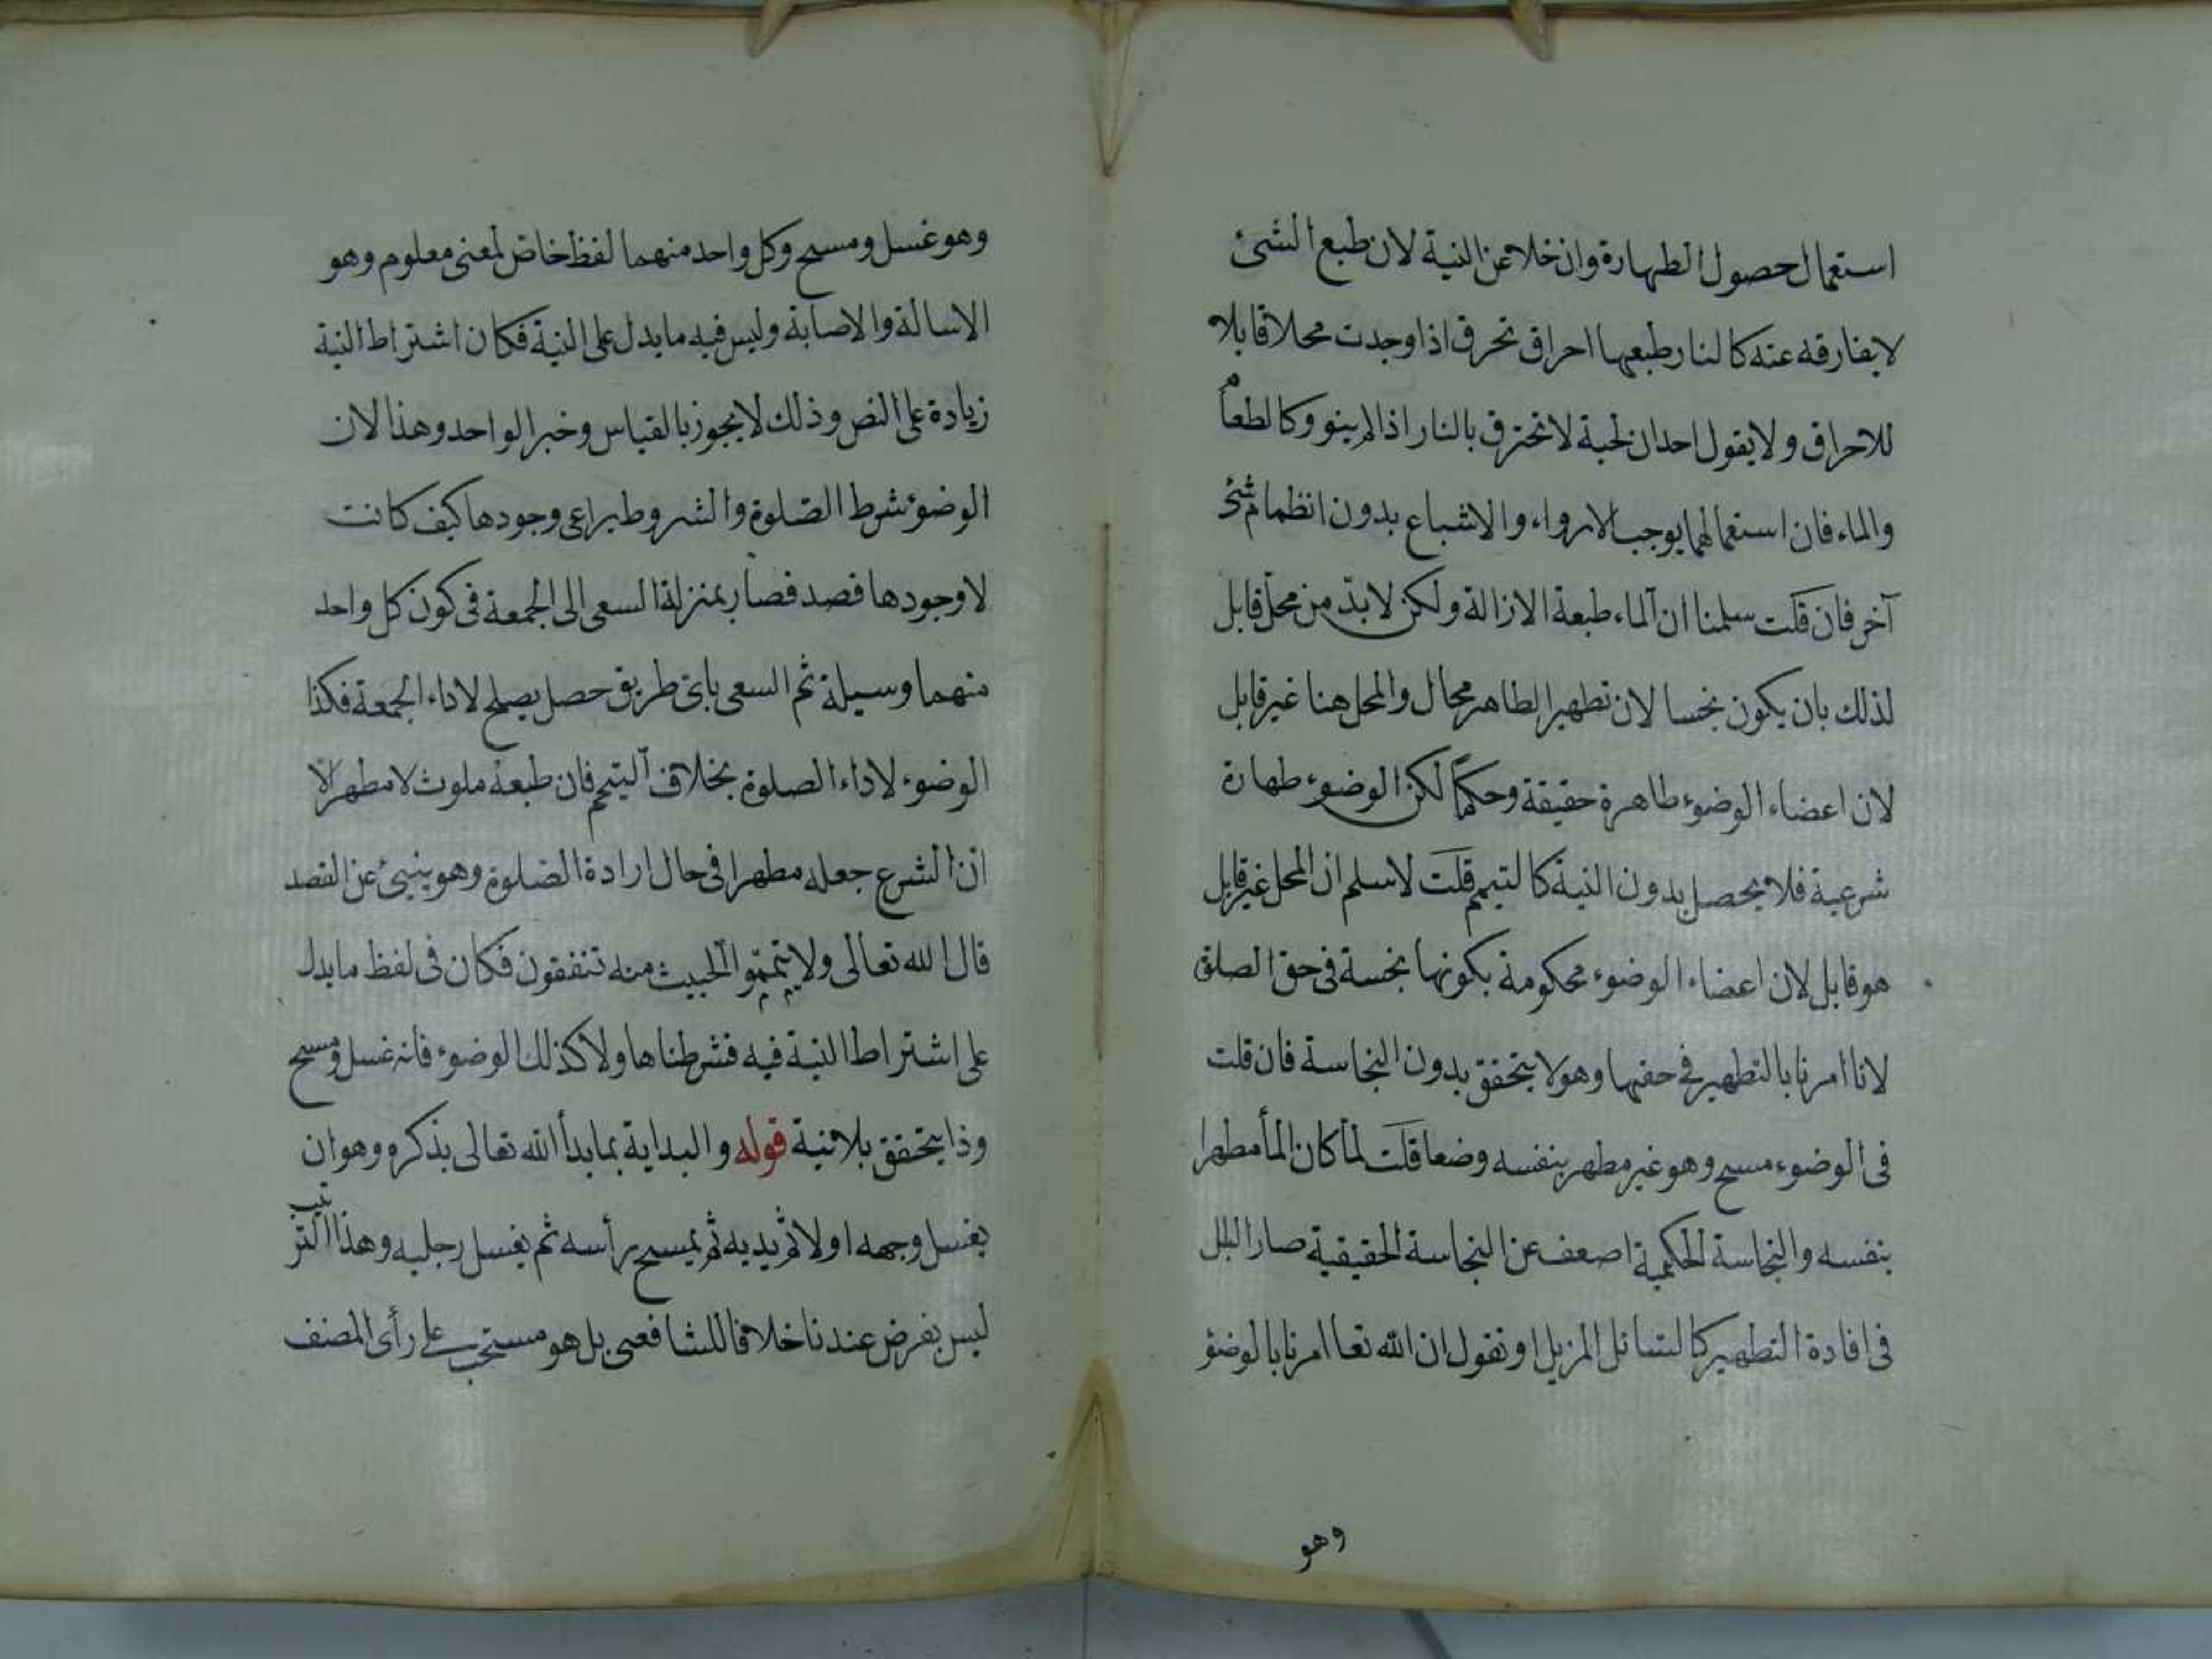 استعمال حصول الطهارة وان خلا عن النية لان طبع الشئ
لا يفارقه عنه كالنار طبعها احراق تحرق اذا وجدت محلا قابلا
للاحراق ولا يقول احدان لحية لا تحترق بالنار اذا لم ينو وكالطعام
والماء فان استعمالهما يوجب الارواء والاشباع بدون انظمام شئ
آخر فان قلت سلمنا ان الماء طبعة الازالة ولكن لابد من محل قابل
لذلك بان يكون نجسا لان تطهير الطاهر محال والمحل هنا غير قابل
لان اعضاء الوضوء طاهرة حقيقة وحكما لكن الوضوء طهارة
شرعية فلا يحصل بدون النية كالتيمم قلت لا سلم ان المحل غير قابل
هو قابل لان اعضاء الوضوء محكومة بكونها نجسة فى حق الصلوة
لانا امرنا بالتطهير فى حقها وهو لا يتحقق بدون النجاسة فان قلت
فى الوضوء مسح وهو غير مطهر بنفسه وضعا قلت لما كان الماء مطهرا
بنفسه والنجاسة الحكمية اضعف عن النجاسة الحقيقية صار البلل
فى افادة التطهير كالتسائل المزيل او نقول ان الله تعا امرنا بالوضؤ
وهو
وهو غسل ومسح وكل واحد منهما لفظ خاص لمعنى معلوم وهو
الاسالة والاصابة وليس فيه ما يدل على النية فكان اشتراط النية
زيادة على النص وذلك لا يجوز بالقياس وخبر الواحد وهذا لان
الوضوء شرط الصلوة والشروط يراعى وجودها كيف كانت
لا وجودها قصد فصار بمنزلة السعى الى الجمعة فى كون كل واحد
منهما وسيلة ثم السعى باى طريق حصل يصلح لاداء الجمعة فكذا
الوضوء لاداء الصلوة بخلاف التيمم فان طبعه ملوث لا مطهر الا
ان الشرع جعله مطهرا فى حال ارادة الصلوة وهو ينبئ عن القصد
قال الله تعالى ولا تيمموا الخبيث منه تنفقون فكان فى لفظ ما يدل
على اشتراط النية فيه فشرطناها ولا كذلك الوضوء فانه غسل ومسح
وذا يتحقق بلا نية قوله والبداية بما بدأ الله تعالى بذكره وهو ان
يغسل وجهه اولا ثم يديه ثم يمسح برأسه ثم يغسل رجليه وهذا الترتيب
ليس بفرض عندنا خلافا للشافعى بل هو مستحب على رأى المصنف